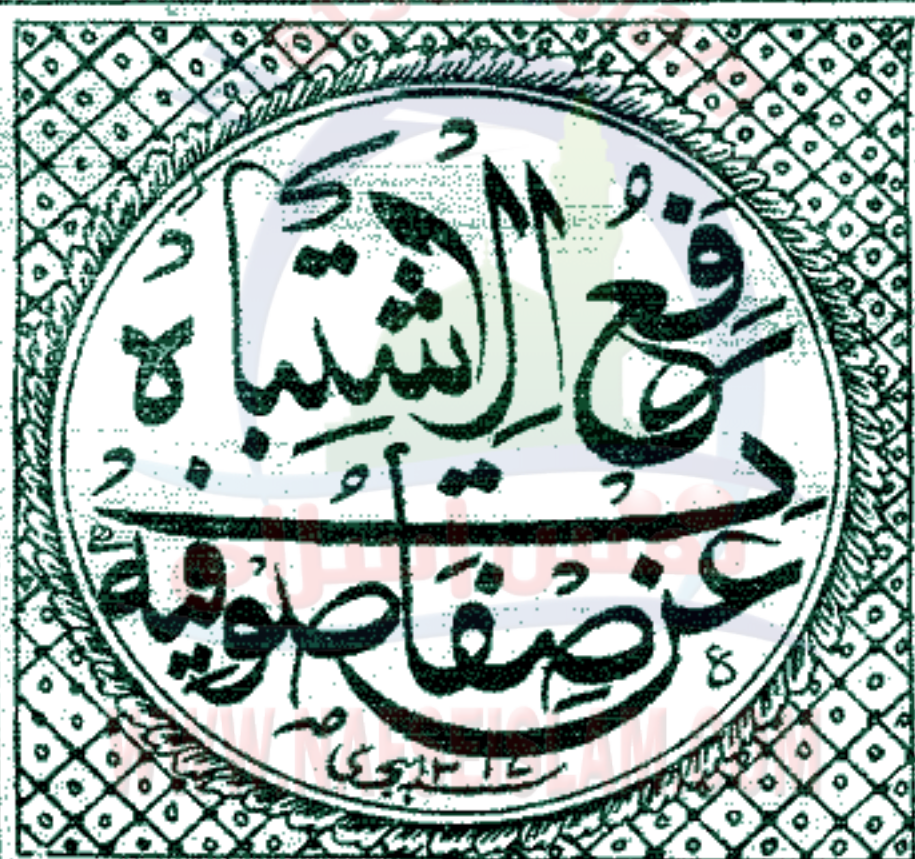 رفع الاشتباه
عن صفات صوفیه
نفس اسلام
WWW.NAFSEISLAM.COM